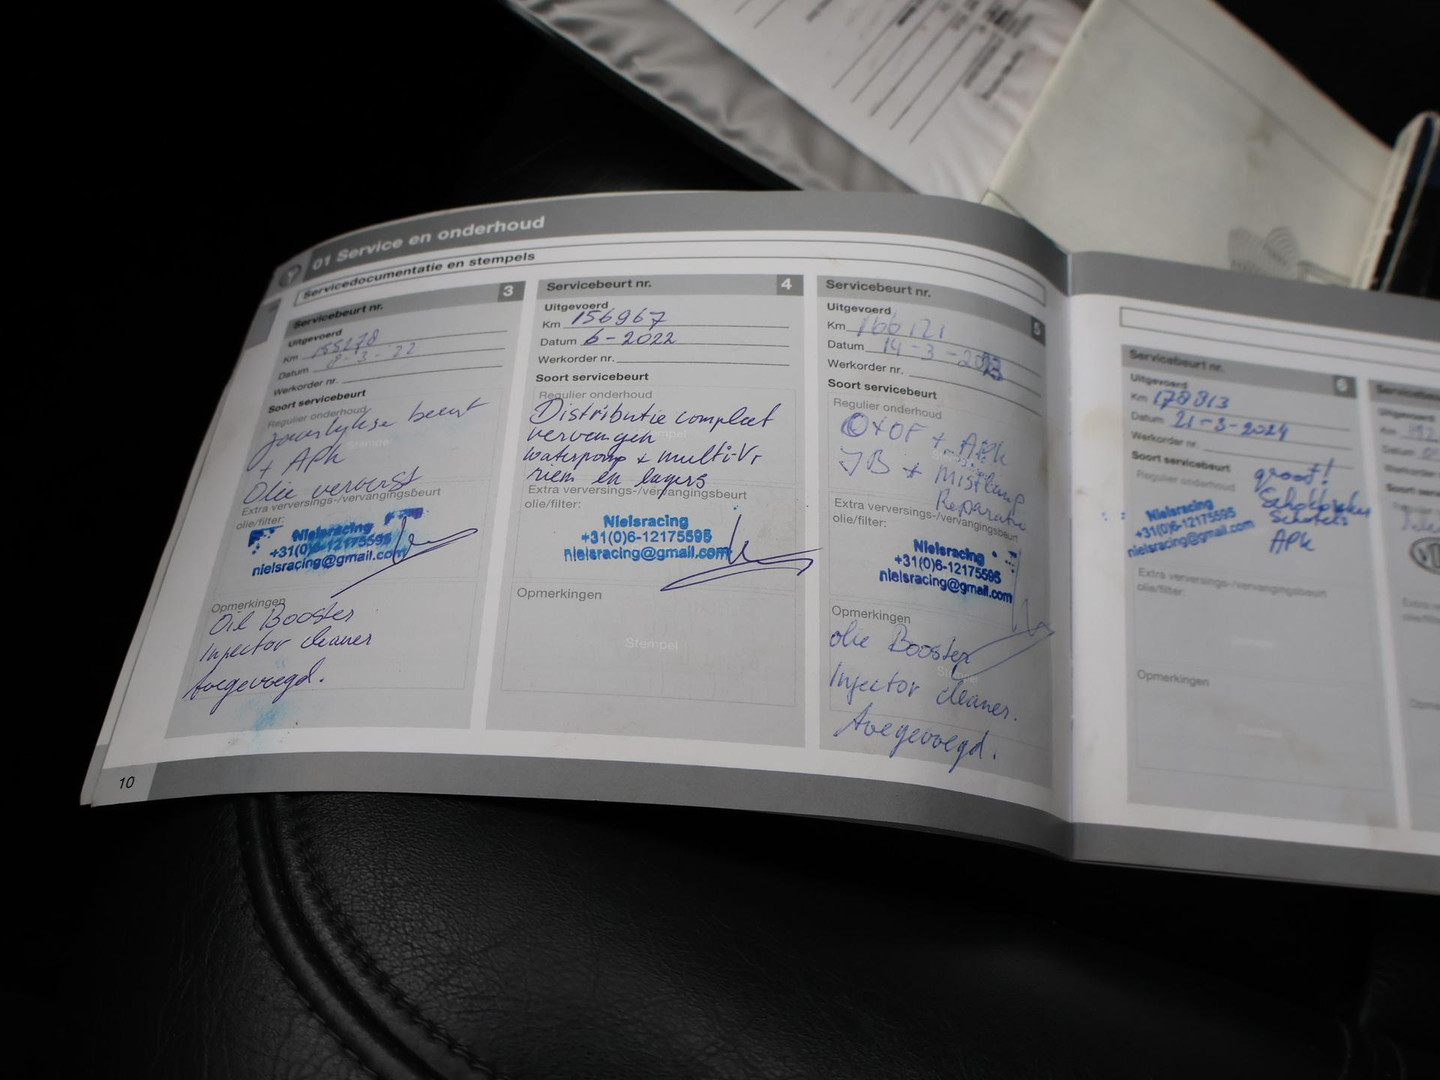 01 Service en onderhoud
Servicedocumentatie en stempels
Servicebeurt nr. 3
Uitgevoerd
Km 155278
Datum 8-3-22
Werkorder nr.
Soort servicebeurt
Regulier onderhoud
jaarlijkse beurt
+ APK
Olie ververst
Extra verversings-/vervangingsbeurt
olie/filter:
Nielsracing
+31(0)6-12175595
nielsracing@gmail.com
Opmerkingen
Oil Booster
Injector cleaner
toegevoegd.
10
Servicebeurt nr. 4
Uitgevoerd
Km 156967
Datum 6-2022
Werkorder nr.
Soort servicebeurt
Regulier onderhoud
Distributie compleet
vervangen
waterpomp + multi-V
riem en lagers
Extra verversings-/vervangingsbeurt
olie/filter:
Nielsracing
+31(0)6-12175595
nielsracing@gmail.com
Opmerkingen
Stempel
Servicebeurt nr. 5
Uitgevoerd
Km 166121
Datum 14-3-2023
Werkorder nr.
Soort servicebeurt
Regulier onderhoud
O+OF + APK
+ Mistlamp
Reparatie
Extra verversings-/vervangingsbeurt
olie/filter:
Nielsracing
+31(0)6-12175595
nielsracing@gmail.com
Opmerkingen
olie Booster
Injector cleaner.
toegevoegd.
Servicebeurt nr. 6
Uitgevoerd
Km 178813
Datum 21-3-2024
Werkorder nr.
Soort servicebeurt
Regulier onderhoud
groot!
Schokbrekers
Schotels
APK
Nielsracing
+31(0)6-12175595
nielsracing@gmail.com
Extra verversings-/vervangingsbeurt
olie/filter:
Opmerkingen